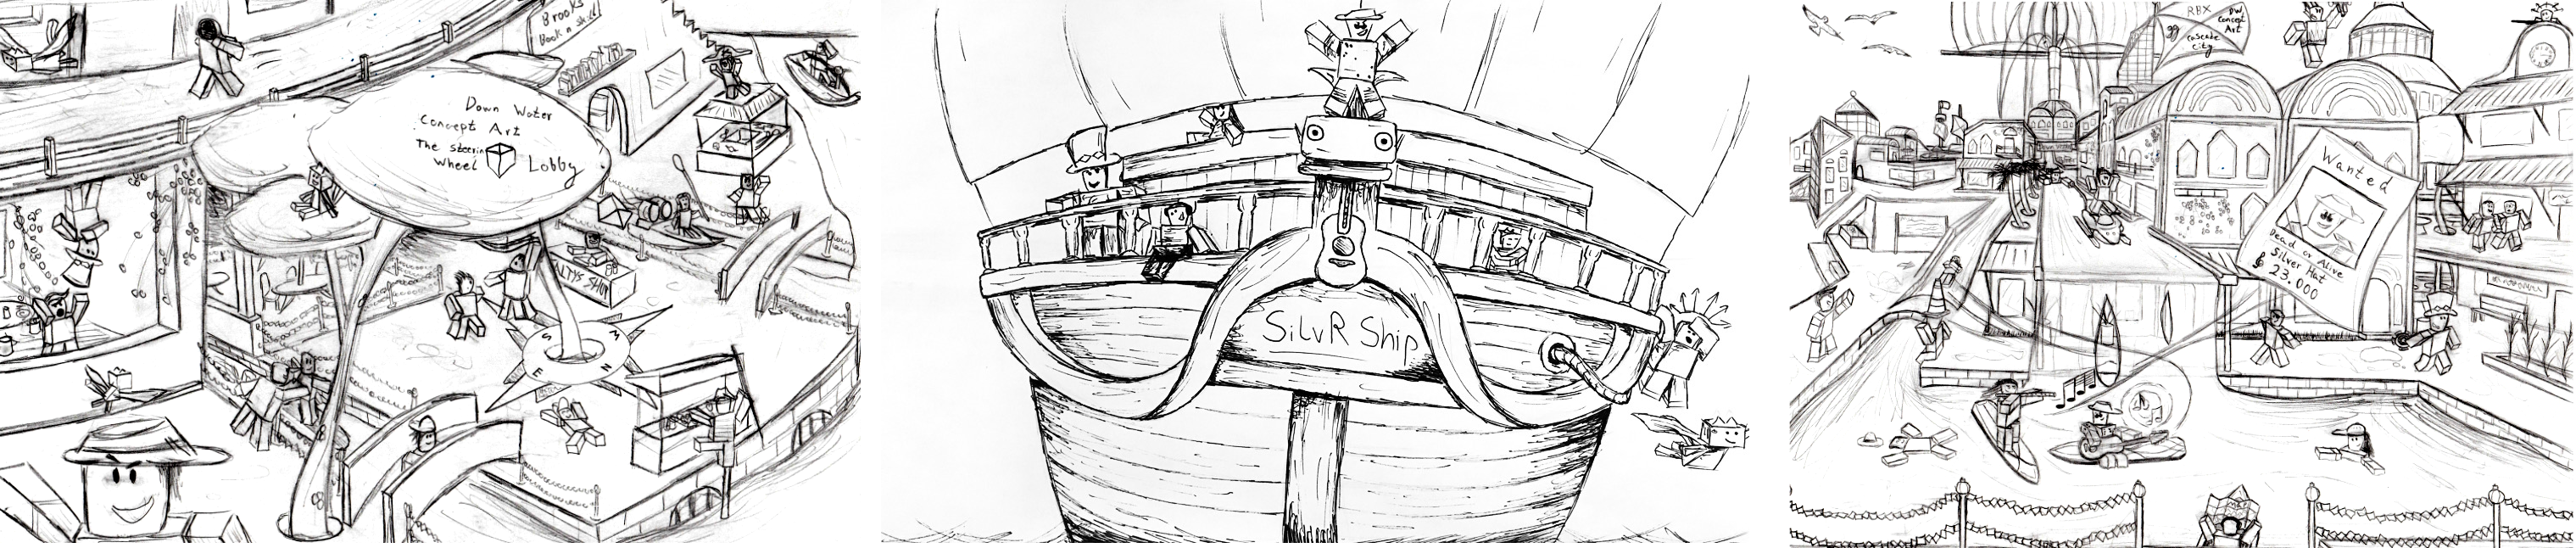 Brooks
Book n skill
Down Water
Concept Art
The steering
Wheel Lobby
ALTYS SHOP
S
W
E
N
SiLvR Ship
RBX
DW
Concept
Art
Cascade
City
Wanted
Dead or Alive
Silver Hat
23.000